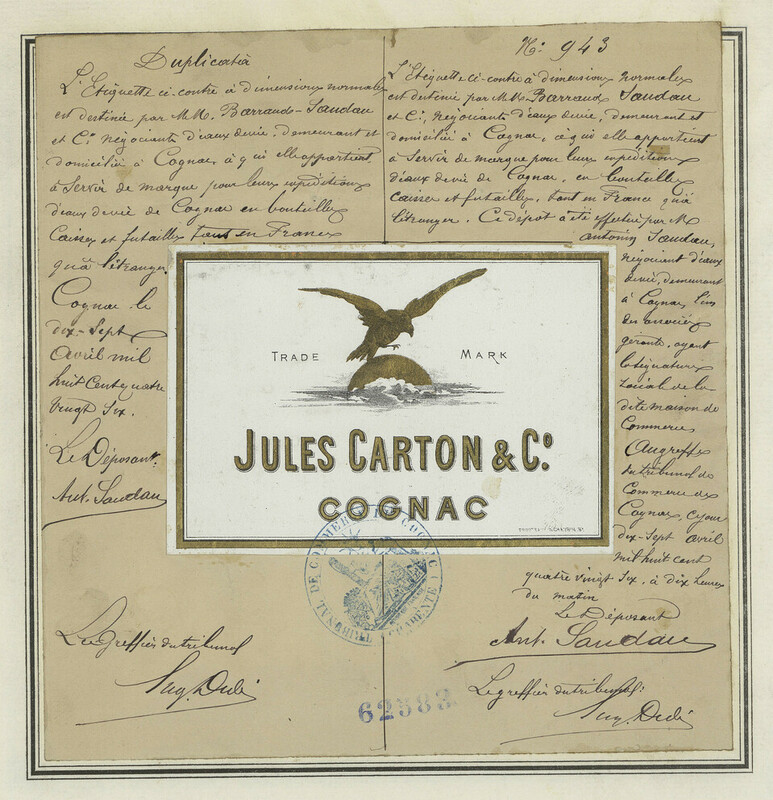 Duplicata
L'Etiquette ci-contre à dimensions normales
est destinée par MM. Barraud-Saudau
et Cie, négociants d'eaux devie, demeurant et
domiciliés à Cognac, à qui elle appartient
à Servir de marque pour leurs expéditions
d'eaux devie de Cognac en bouteilles
Caisses et futailles tant en France
qu'à l'étranger.
Cognac le
dix-Sept
Avril mil
huit Cent quatre
Vingt Six.
Le Déposant.
Ant. Saudau
Le greffier du tribunal
No. 943
L'Etiquette ci-contre à dimensions normales
est destinée par MM. Barraud Saudau
et Cie, négociants d'eaux devie, demeurant et
domiciliés à Cognac, à qui elle appartient
à Servir de marque pour leurs expéditions
d'eaux devie de Cognac, en bouteilles
caisses et futailles, tant en France qu'à
l'étranger. Ce dépôt a été effectué par M
Antonin Saudau,
négociant d'eaux
devie, demeurant
à Cognac, l'un
des associés
gérants, ayant
la signature
social de la
dite maison de
Commerce
Au greffe
du tribunal de
Commerce de
Cognac, ce jour
dix-Sept avril
mil huit cent
quatre vingt Six, à dix heures
du matin
Le Déposant
Ant. Saudau
Le greffier du tribunal:
TRADE MARK
JULES CARTON & Co.
COGNAC
TRIBUNAL DE COMMERCE DE COGNAC (CHARENTE)
62583